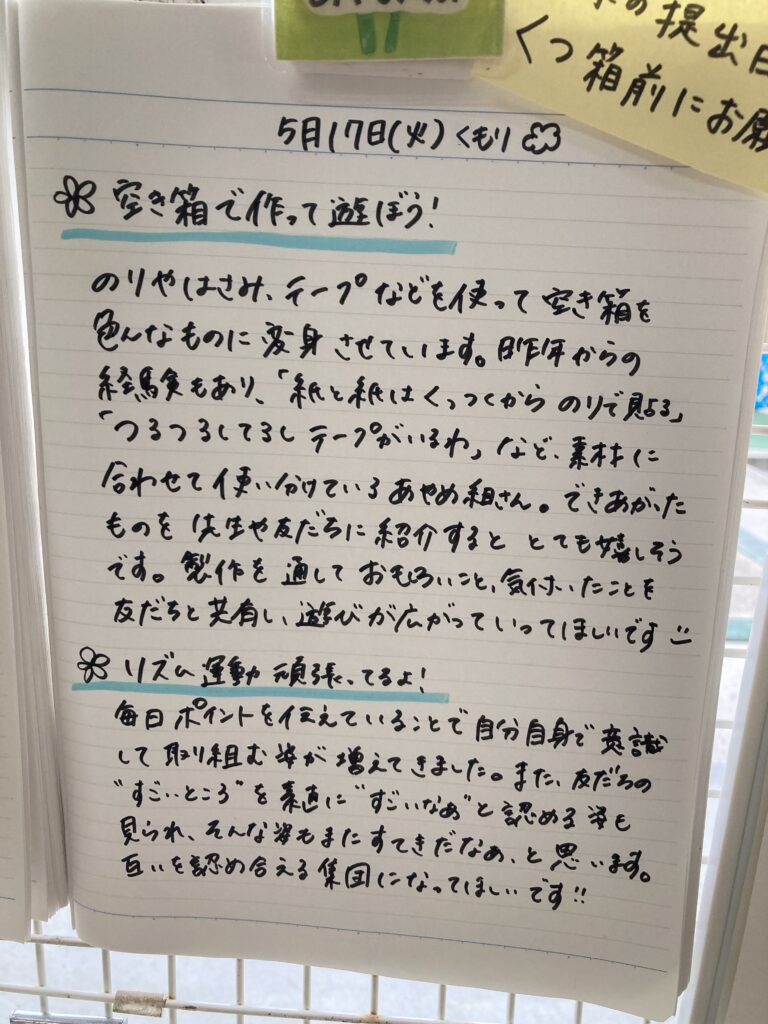 の提出日
くつ箱前にお願
5月17日(火)くもり
空き箱で作って遊ぼう!
のりやはさみ、テープなどを使って空き箱を
色んなものに変身させています。昨年からの
経験もあり、「紙と紙はくっつくからのりで貼る」
「つるつるしてるしテープがいるわ」など、素材に
合わせて使い分けているあやめ組さん。できあがった
ものを先生や友だちに紹介するととても嬉しそう
です。製作を通しておもしろいこと、気付いたことを
友だちと共有し、遊びが広がっていってほしいです
リズム運動頑張ってるよ!
毎日ポイントを伝えていることで自分自身で意識
して取り組む姿が増えてきました。また、友だちの
"すごいところ"を素直に"すごいなぁ"と認める姿も
見られ、そんな姿もまたすてきだなぁ、と思います。
互いを認め合える集団になってほしいです!!